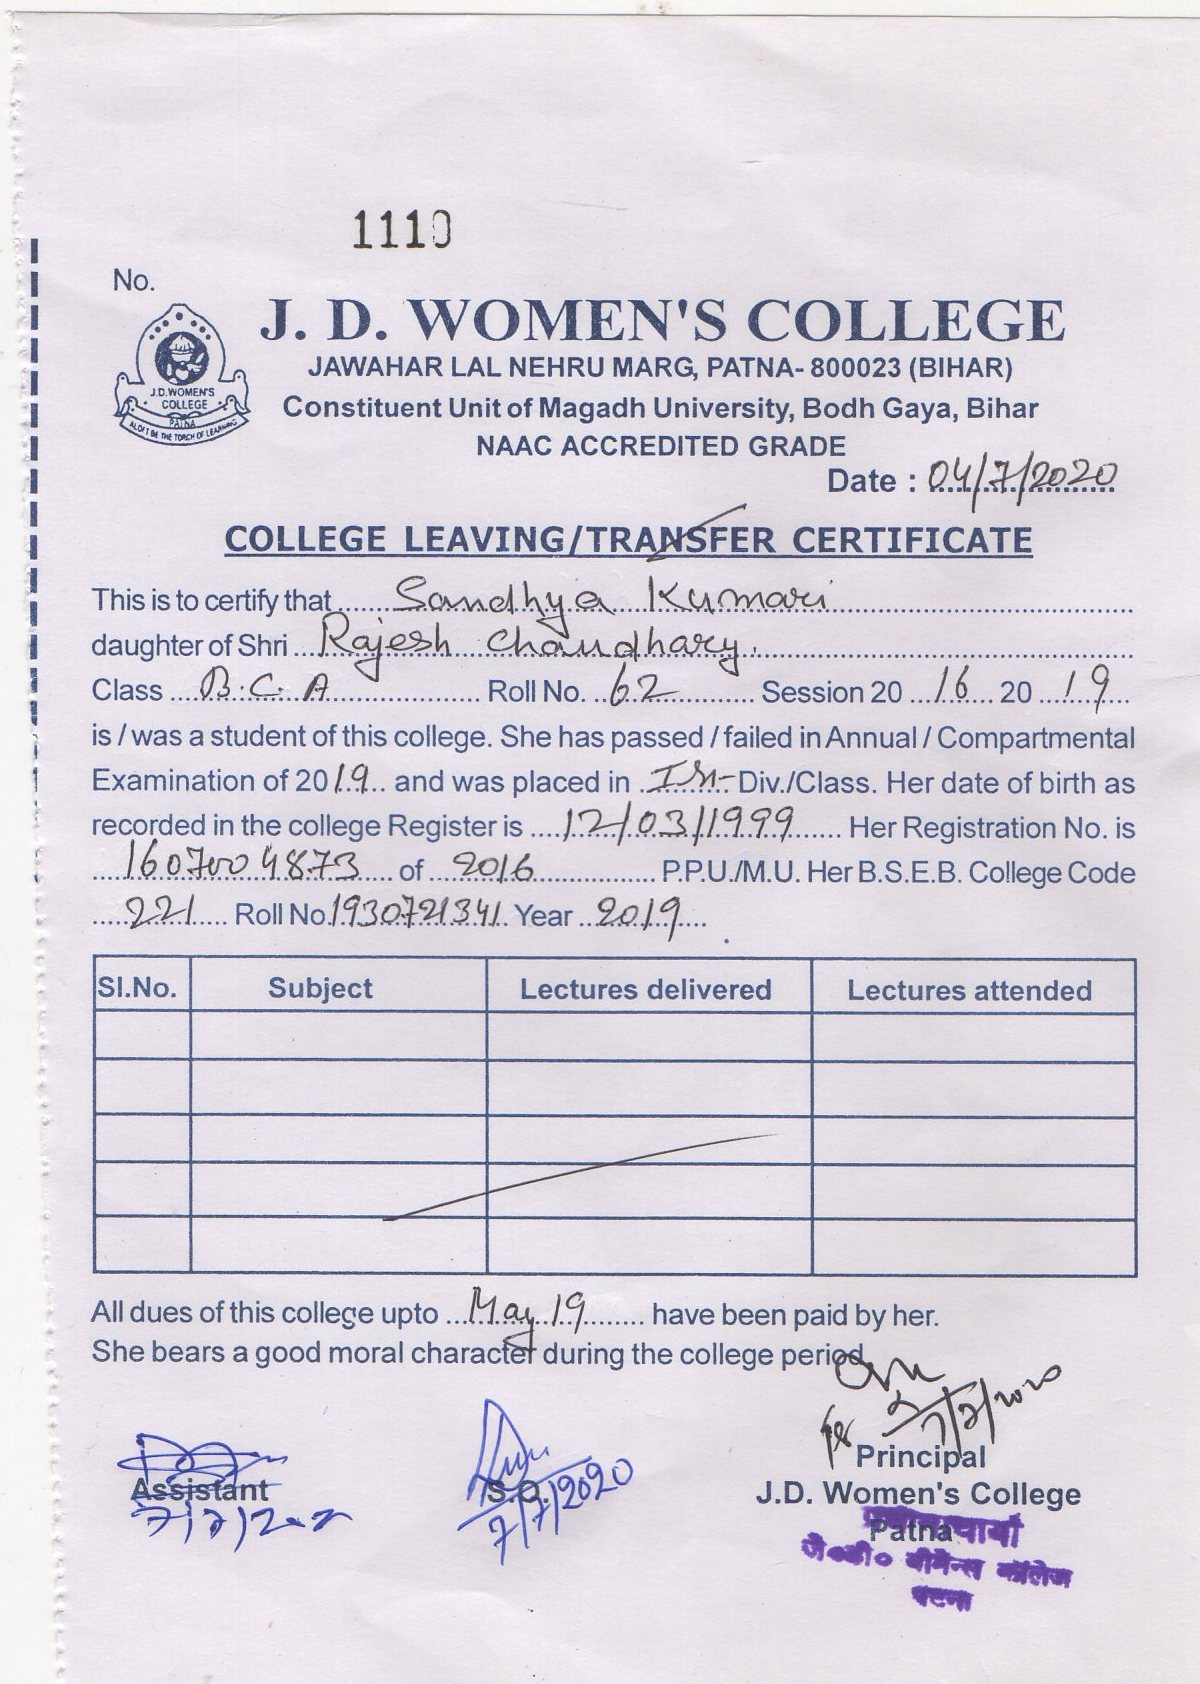 1110
No.
J. D. WOMEN'S COLLEGE
JAWAHAR LAL NEHRU MARG, PATNA- 800023 (BIHAR)
J.D.WOMEN'S
COLLEGE
PATNA
ALOFT BE THE TORCH OF LEARNING
Constituent Unit of Magadh University, Bodh Gaya, Bihar
NAAC ACCREDITED GRADE
Date : 04/7/2020
COLLEGE LEAVING/TRANSFER CERTIFICATE
This is to certify that Sandhya Kumari
daughter of Shri Rajesh Chaudhary.
Class B.C.A Roll No. 62 Session 20 16 20 19
is / was a student of this college. She has passed / failed in Annual / Compartmental
Examination of 2019 and was placed in Ist Div./Class. Her date of birth as
recorded in the college Register is 12/03/1999 Her Registration No. is
1607004873 of 2016 P.P.U./M.U. Her B.S.E.B. College Code
221 Roll No. 1930721341 Year 2019
Sl.No. Subject Lectures delivered Lectures attended
All dues of this college upto May 19 have been paid by her.
She bears a good moral character during the college period
7/7/2020
Principal
Assistant S.O. J.D. Women's College
7/7/2020 Patna
जे०डी० वीमेन्स कॉलेज
पटना